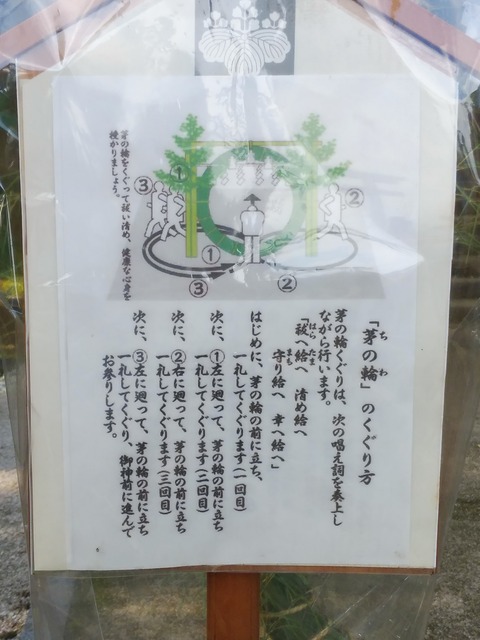 茅の輪をくぐって祓い清め、健康な心身を
授かりましょう。
③
①
②
①
②
③
「茅の輪」のくぐり方
ちわ
茅の輪くぐりは、次の唱え詞を奏上し
ながら行います。
「祓へ給へ 清め給へ
はらたま
守り給へ 幸へ給へ」
まも
はじめに、茅の輪の前に立ち、
一礼してくぐります(一回目)
次に、①左に廻って、茅の輪の前に立ち
一礼してくぐります(二回目)
次に、②右に廻って、茅の輪の前に立ち
一礼してくぐります(三回目)
次に、③左に廻って、茅の輪の前に立ち
一礼してくぐり、御神前に進んで
お参りします。